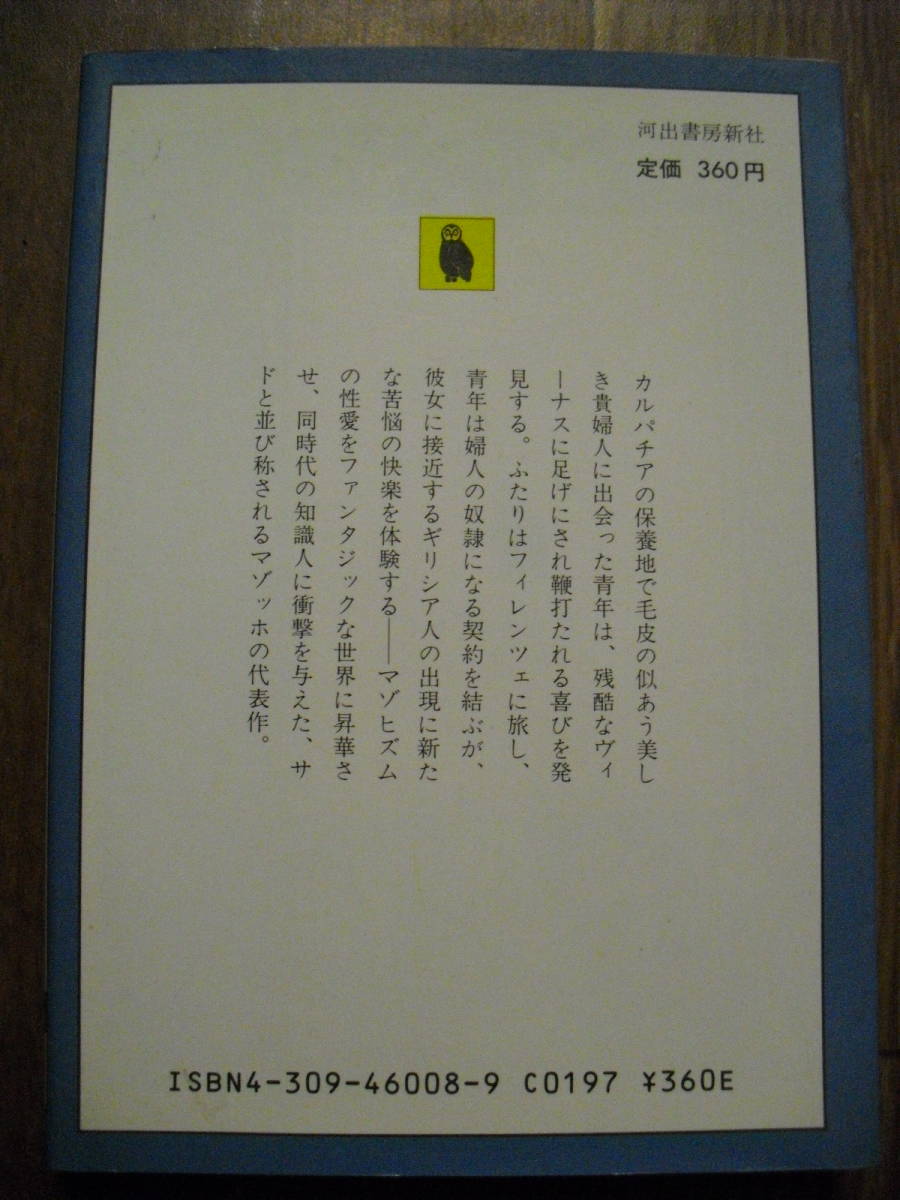 河出書房新社
定価 360円
カルパチアの保養地で毛皮の似あう美し
き貴婦人に出会った青年は、残酷なヴィ
ーナスに足げにされ鞭打たれる喜びを発
見する。ふたりはフィレンツェに旅し、
青年は婦人の奴隷になる契約を結ぶが、
彼女に接近するギリシア人の出現に新た
な苦悩の快楽を体験する──マゾヒズム
の性愛をファンタジックな世界に昇華さ
せ、同時代の知識人に衝撃を与えた、サ
ドと並び称されるマゾッホの代表作。
ISBN4-309-46008-9 C0197 ¥360E